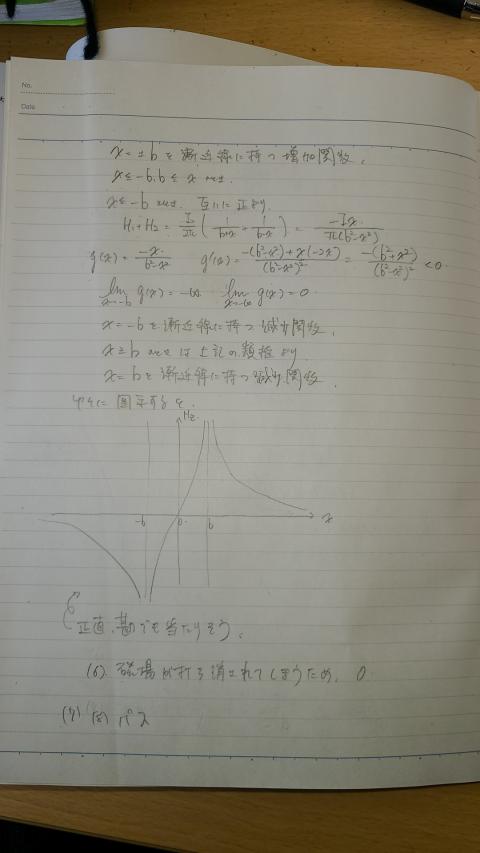 No.
Date
x=±bを漸近線に持つ増加関数.
x≤-b, b≤x
x≤-b 互いに正より.
H₁+H₂ = I/2π (1/(b+x) + 1/(b-x)) = -Ix/π(b²-x²)
g(x) = -x/(b²-x²) g'(x) = (-(b²-x²)+x(-2x))/(b²-x²)² = -(b²+x²)/(b²-x²)² < 0
lim x→-b g(x) = -∞ lim x→-∞ g(x) = 0.
x=-bを漸近線に持つ減少関数.
x≥b は上記の類推より
x=bを漸近線に持つ減少関数.
ゆえに図示すると.
Hz
-b 0 b x
正直、勘でも当たりそう.
(6) 磁場が打ち消されてしまうため. 0
(7) (8) パス